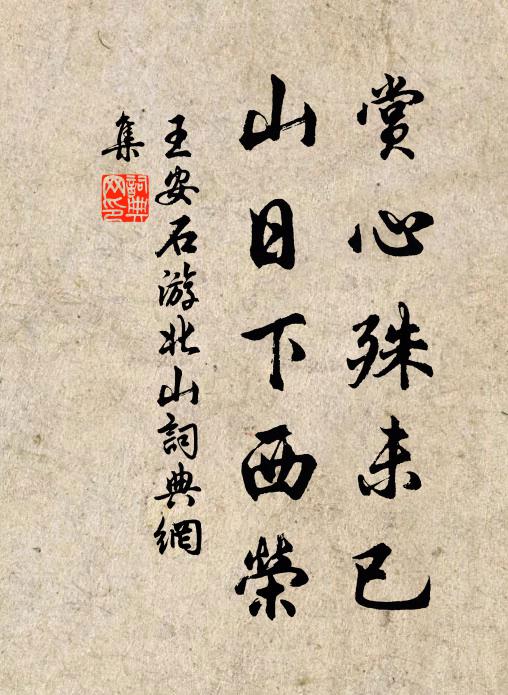 賞心殊未已
山日下西榮
王安石游北山詞典網
集
詞典网印